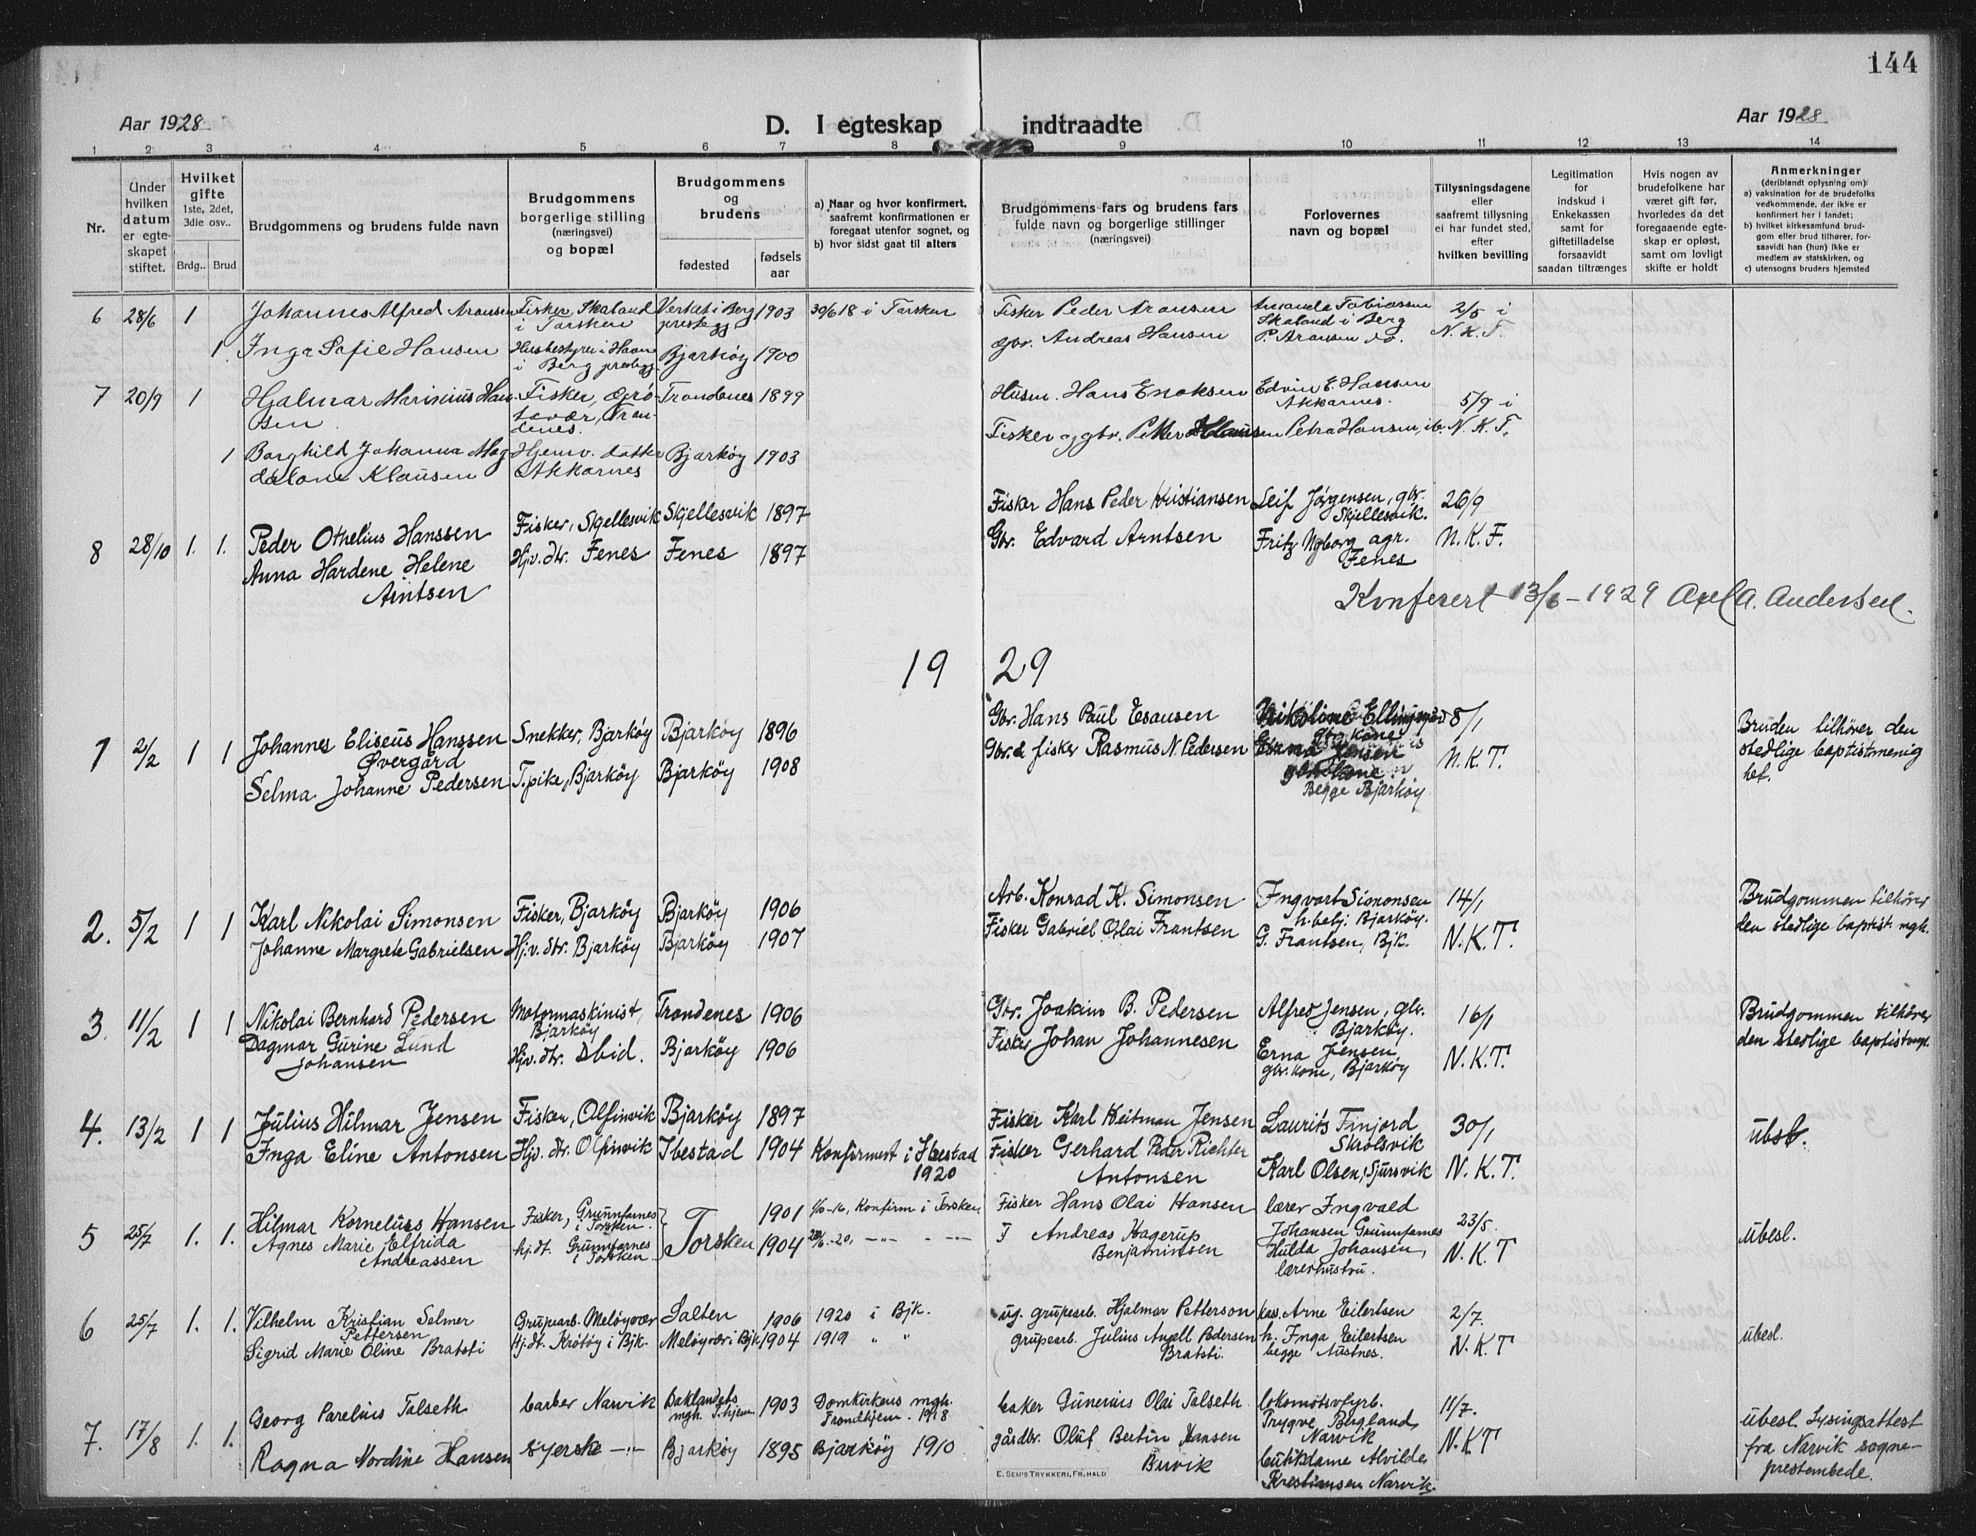 144
Aar 1928
D. I egteskap indtraadte
Aar 1928
1 2 3 4 5 6 7 8 9 10 11 12 13 14
Nr.
Under hvilken datum er egteskapet stiftet.
Hvilket gifte
1ste, 2det, 3die osv..
Brdg.. Brud
Brudgommens og brudens fulde navn
Brudgommens borgerlige stilling (næringsvei) og bopæl
Brudgommens og brudens
fødested
fødsels aar
a) Naar og hvor konfirmert, saafremt konfirmationen er foregaat utenfor sognet, og
b) hvor sidst gaat til alters
Brudgommens fars og brudens fars fulde navn og borgerlige stillinger (næringsvei)
Forlovernes navn og bopæl
Tillysningsdagene eller saafremt tillysning ei har fundet sted, efter hvilken bevilling
Legitimation for indskud i Enkekassen samt for giftetilladelse forsaavidt saadan tiltrænges
Hvis nogen av brudefolkene har været gift før, hvorledes da det foregaaende egteskap er opløst, samt om lovligt skifte er holdt
Anmerkninger
(deriblandt oplysning om):
a) vaksination for de brudefolks vedkommende, der ikke er konfirmert her i landet;
b) hvilket kirkesamfund brudgom eller brud tilhører, forsaavidt han (hun) ikke er medlem av statskirken, og
c) utensogns bruders hjemsted
6 28/6 1 Johannes Alfred Aronsen Fisker Skaland i Torsken Berg prestegj 1903 30/6 18 i Torsken Fisker Peder Aronsen Amanda Tobiassen Skaland i Berg 2/5 i
1 Inga Sofie Hansen Husbestyrer i Havn i Berg prestegj. Bjarkøy 1900 gbr. Andreas Hansen P. Aronsen do. N.K.T.
7 20/9 1 Hjalmar Marinius Hansen Fisker, Trondenes 1899 Husm. Hans Enoksen Edvin E. Hansen Akkarnes. 5/9 i
1 Borghild Johanna Magdalone Klausen Hjemv. datter Akkarnes Bjarkøy 1903 Fisker og gbr. Petter Klausen Petra Hansen, ib. N.K.T.
8 28/10 1. 1. Peder Othelius Hanssen Fisker, Skjellesvik Skjellesvik 1897 Fisker Hans Peder Kristiansen Leif Jørgensen, gbr. Skjellesvik. 26/9
Anna Hardene Helene Arntsen Hjv. dtr. Fenes Fenes 1897 Gbr. Edvard Arntsen Fritz Nyborg agr. Fenes N.K.F.
Konferert 13/6-1929 Axel A. Andersen.
19 29
1 2/2 1 1 Johannes Eliseus Hanssen Øvergård Snekker, Bjarkøy Bjarkøy 1896 Gbr. Hans Paul Esausen Nikoline Ellingsgård gbr. kone 8/1 Bruden tilhører den stedlige baptistmenighet.
Selma Johanne Pedersen T. pike, Bjarkøy Bjarkøy 1908 Gbr. & fisker Rasmus N. Pedersen Erna Jensen gbr. kone Begge Bjarkøy N.K.T.
2. 5/2 1 1 Karl Nikolai Simonsen Fisker, Bjarkøy Bjarkøy 1906 Arb. Konrad K. Simonsen Ingvart Simonsen h. betj. Bjarkøy. 14/1 Brudgommen tilhører den stedlige baptist mgh.
Johanne Margrete Gabrielsen Hj.v. dtr. Bjarkøy Bjarkøy 1907 Fisker Gabriel Olai Frantsen G. Frantsen, Bjk. N.K.T.
3. 11/2 1 1 Nikolai Bernhard Pedersen Motormaskinist, Bjarkøy Trondenes 1906 Gbr. Joakim B. Pedersen Alfred Jensen, gbr. Bjarkøy. 16/1 Brudgommen tilhører den stedlige baptistmgt.
Dagmar Gurine Lund Johansen Hjv. dtr. Ibid. Bjarkøy 1906 Fisker Johan Johannesen Erna Jensen gbr. kone, Bjarkøy N.K.T.
4. 13/2 1 1 Julius Hilmar Jensen Fisker, Olfinvik Bjarkøy 1897 Fisker Karl Heitman Jensen Laurits Finjord Skrolsvik 30/1 ubsl.
Inga Eline Antonsen Hjv. dtr. Olfinvik Ibestad 1904 Konfirmert i Ibestad 1920 Fisker Gerhard Peder Richter Antonsen Karl Olsen, Sjursvik N.K.T.
5 25/7 1. 1. Hilmar Kornelius Hansen Fisker, Grunnfarnes i Torsken. Torsken 1901 1/10-16, Konfirm i Torsken Fisker Hans Olai Hansen lærer Ingvald Johansen Grunnfarnes 23/5. ubesl.
Agnes Marie Elfrida Andreassen hj. dt. Grunnfarnes i Torsken. 1904 20/6.-20, -"- -"- F Andreas Hagerup Benjaminsen Hulda Johansen, lærerhustru. N.K.T
6 25/7 1. 1. Vilhelm Kristian Selmer Pettersen Grupearb. Meløyvær Salten 1906 1920 i Bjk. ug. grupearb. Hjalmar Petterson kas. Arne Eilertsen 2/7. ubesl.
Sigrid Marie Oline Bratsti Hj. dt. Krøtøy i Bjk. Meløyvær i Bjk 1904 1919 " " grupearb. Julius Angell Pedersen Bratsti h. Inga Eilertsen begge Austnes. N.K.T
7. 17/8 1. 1. Georg Parelius Talseth barber Narvik Baklandets mgh. T.hjem 1903 Domkirkens mgh. Trondhjem. 1918 baker Gunerius Olai Talseth lokomotivfyrb. Trygve Bergland, Narvik 11/7. ubesl. Lysingsattest fra Narvik sogneprestembede.
Ragna Nordine Hansen syerske -"- Bjarkøy 1895 Bjarkøy 1910 gårdbr. Oluf Bertin Hansen Buvik butikdame Alvilde Kristiansen Narvik. N.K.T
E. SEM'S TRYKKERI, FR.HALD